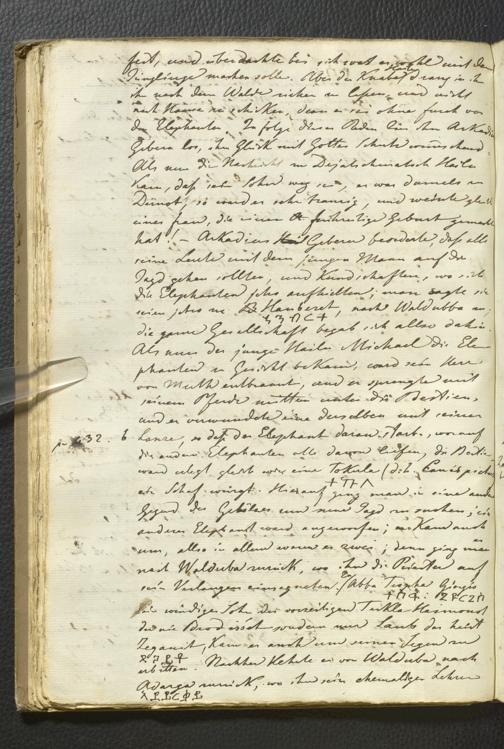 fest, und überdachte bei sich was er wohl mit dem
Jünglinge machen solle. Aber der Knabe drang in ihn
ihn nach dem Walde ziehen zu lassen, und nicht
nach Hause zu schicken, denn er sei ohne furcht vor
den Elephanten. In folge dieser Reden liess ihn Arkadius
Gebern los, ihm Glück mit Gottes Schutz wünschend
Als nun die Nachricht zu Dejatschmatsch Hailu
kam, daß sein Sohn weg sei, er war damals in
so ward er sehr traurig, und wehrte gleich
einer frau, die eine frühzeitige Geburt gemacht
hat! – Arkadius Gebern beorderte, daß alle
seine Leute mit dem jungen Mann auf die
Jagd gehen sollten, und Kundschaften, wo sich
die Elephanten jetzt aufhielten; man sagte sie
seien jetzt nach Waldubba zu,
die ganze Gesellschaft begab sich also dahin
Als nun der junge Hailu Michael die Ele-
phanten zu Gesicht bekam, ward sein Herz
von Muth entbrannt, und er sprengte mit
seinem Pferde mitten unter die Bestien,
und er verwundete eine derselben mit seiner
p. 32. 6 Lanze, so daß der Elephant daran starb, worauf
die andern Elephanten alle davon liefen, die Bestie
ward erlegt gleich wie eine Tokula (d.h. Canis pictus)
ein Schaf würgt. Hierauf ging man in eine andere
Gegend des Gehölzes um neue Jagd zu suchen; ein
anderer Elephant ward angeworfen; er kam auch
um, alles in allem waren es zwei; denn ging man
nach Walduba zurück, wo ihn die Priester auf
sein Verlangen einsegneten. Abba
ein würdiger Sohn des vorzeitigen Tekla Haimanot
der nie Brod isst sondern nur Laub das heist
kam er auch um seinen Segen zu
erbitten. Nachher kehrte er von Walduba nach
Adarga zurück, wo ihm sein ehemaliger Lehrer